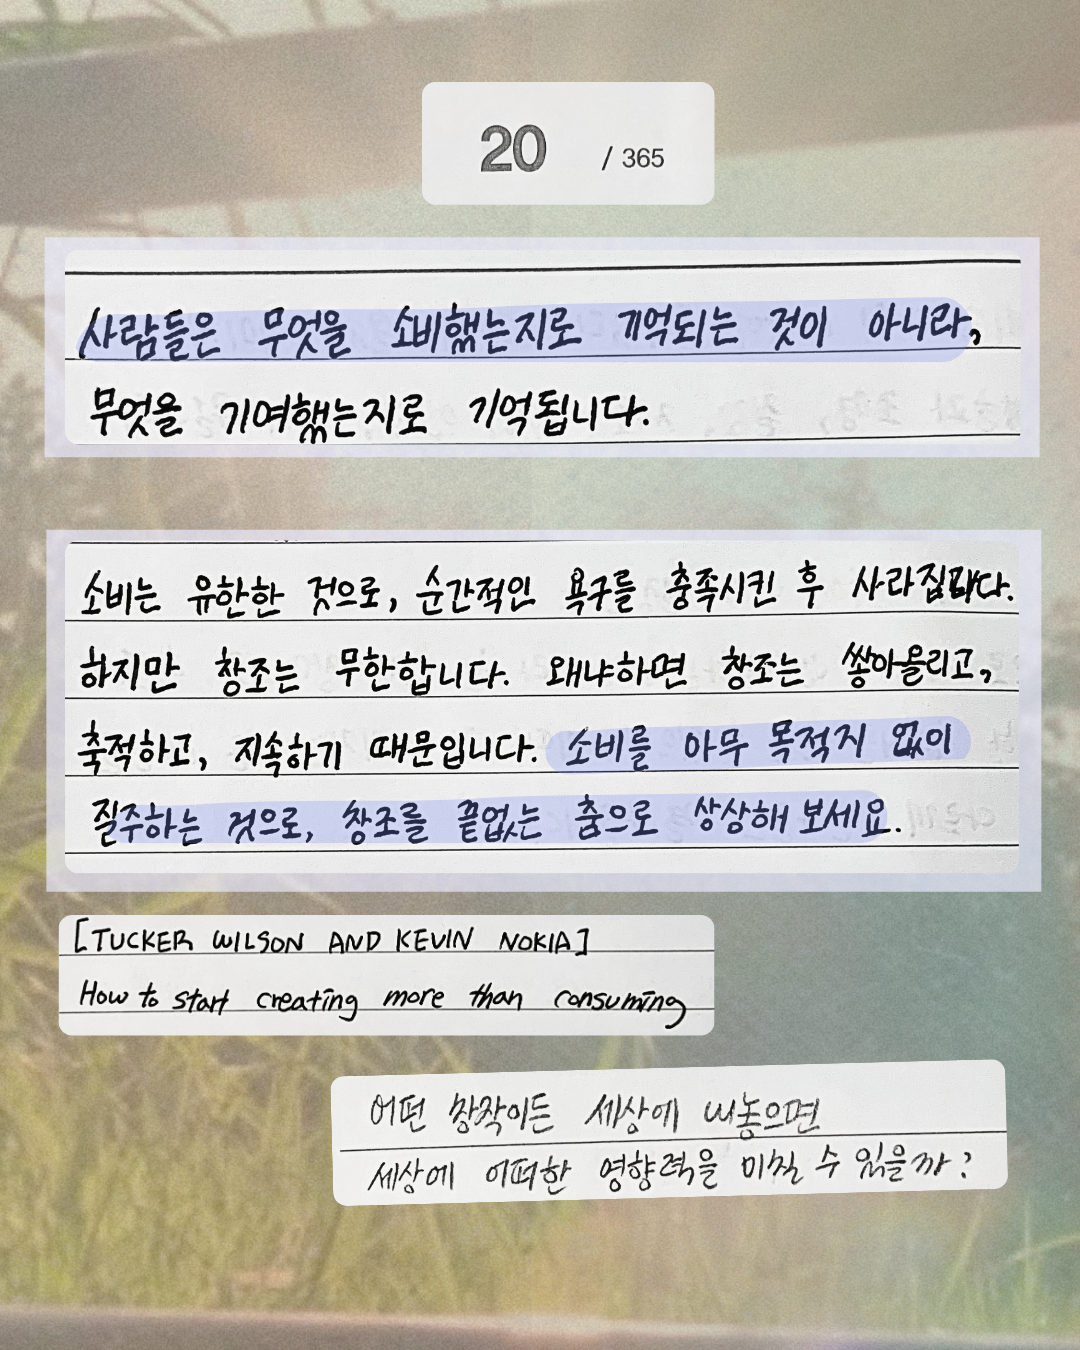 20 / 365
사람들은 무엇을 소비했는지로 기억되는 것이 아니라,
무엇을 기여했는지로 기억됩니다.
소비는 유한한 것으로, 순간적인 욕구를 충족시킨 후 사라집니다.
하지만 창조는 무한합니다. 왜냐하면 창조는 쌓아올리고,
축적하고, 지속하기 때문입니다. 소비를 아무 목적지 없이
질주하는 것으로, 창조를 끝없는 춤으로 상상해 보세요.
[TUCKER WILSON AND KEVIN NOKIA]
How to start creating more than consuming
어떤 창작이든 세상에 내놓으면
세상에 어떠한 영향력을 미칠 수 있을까?